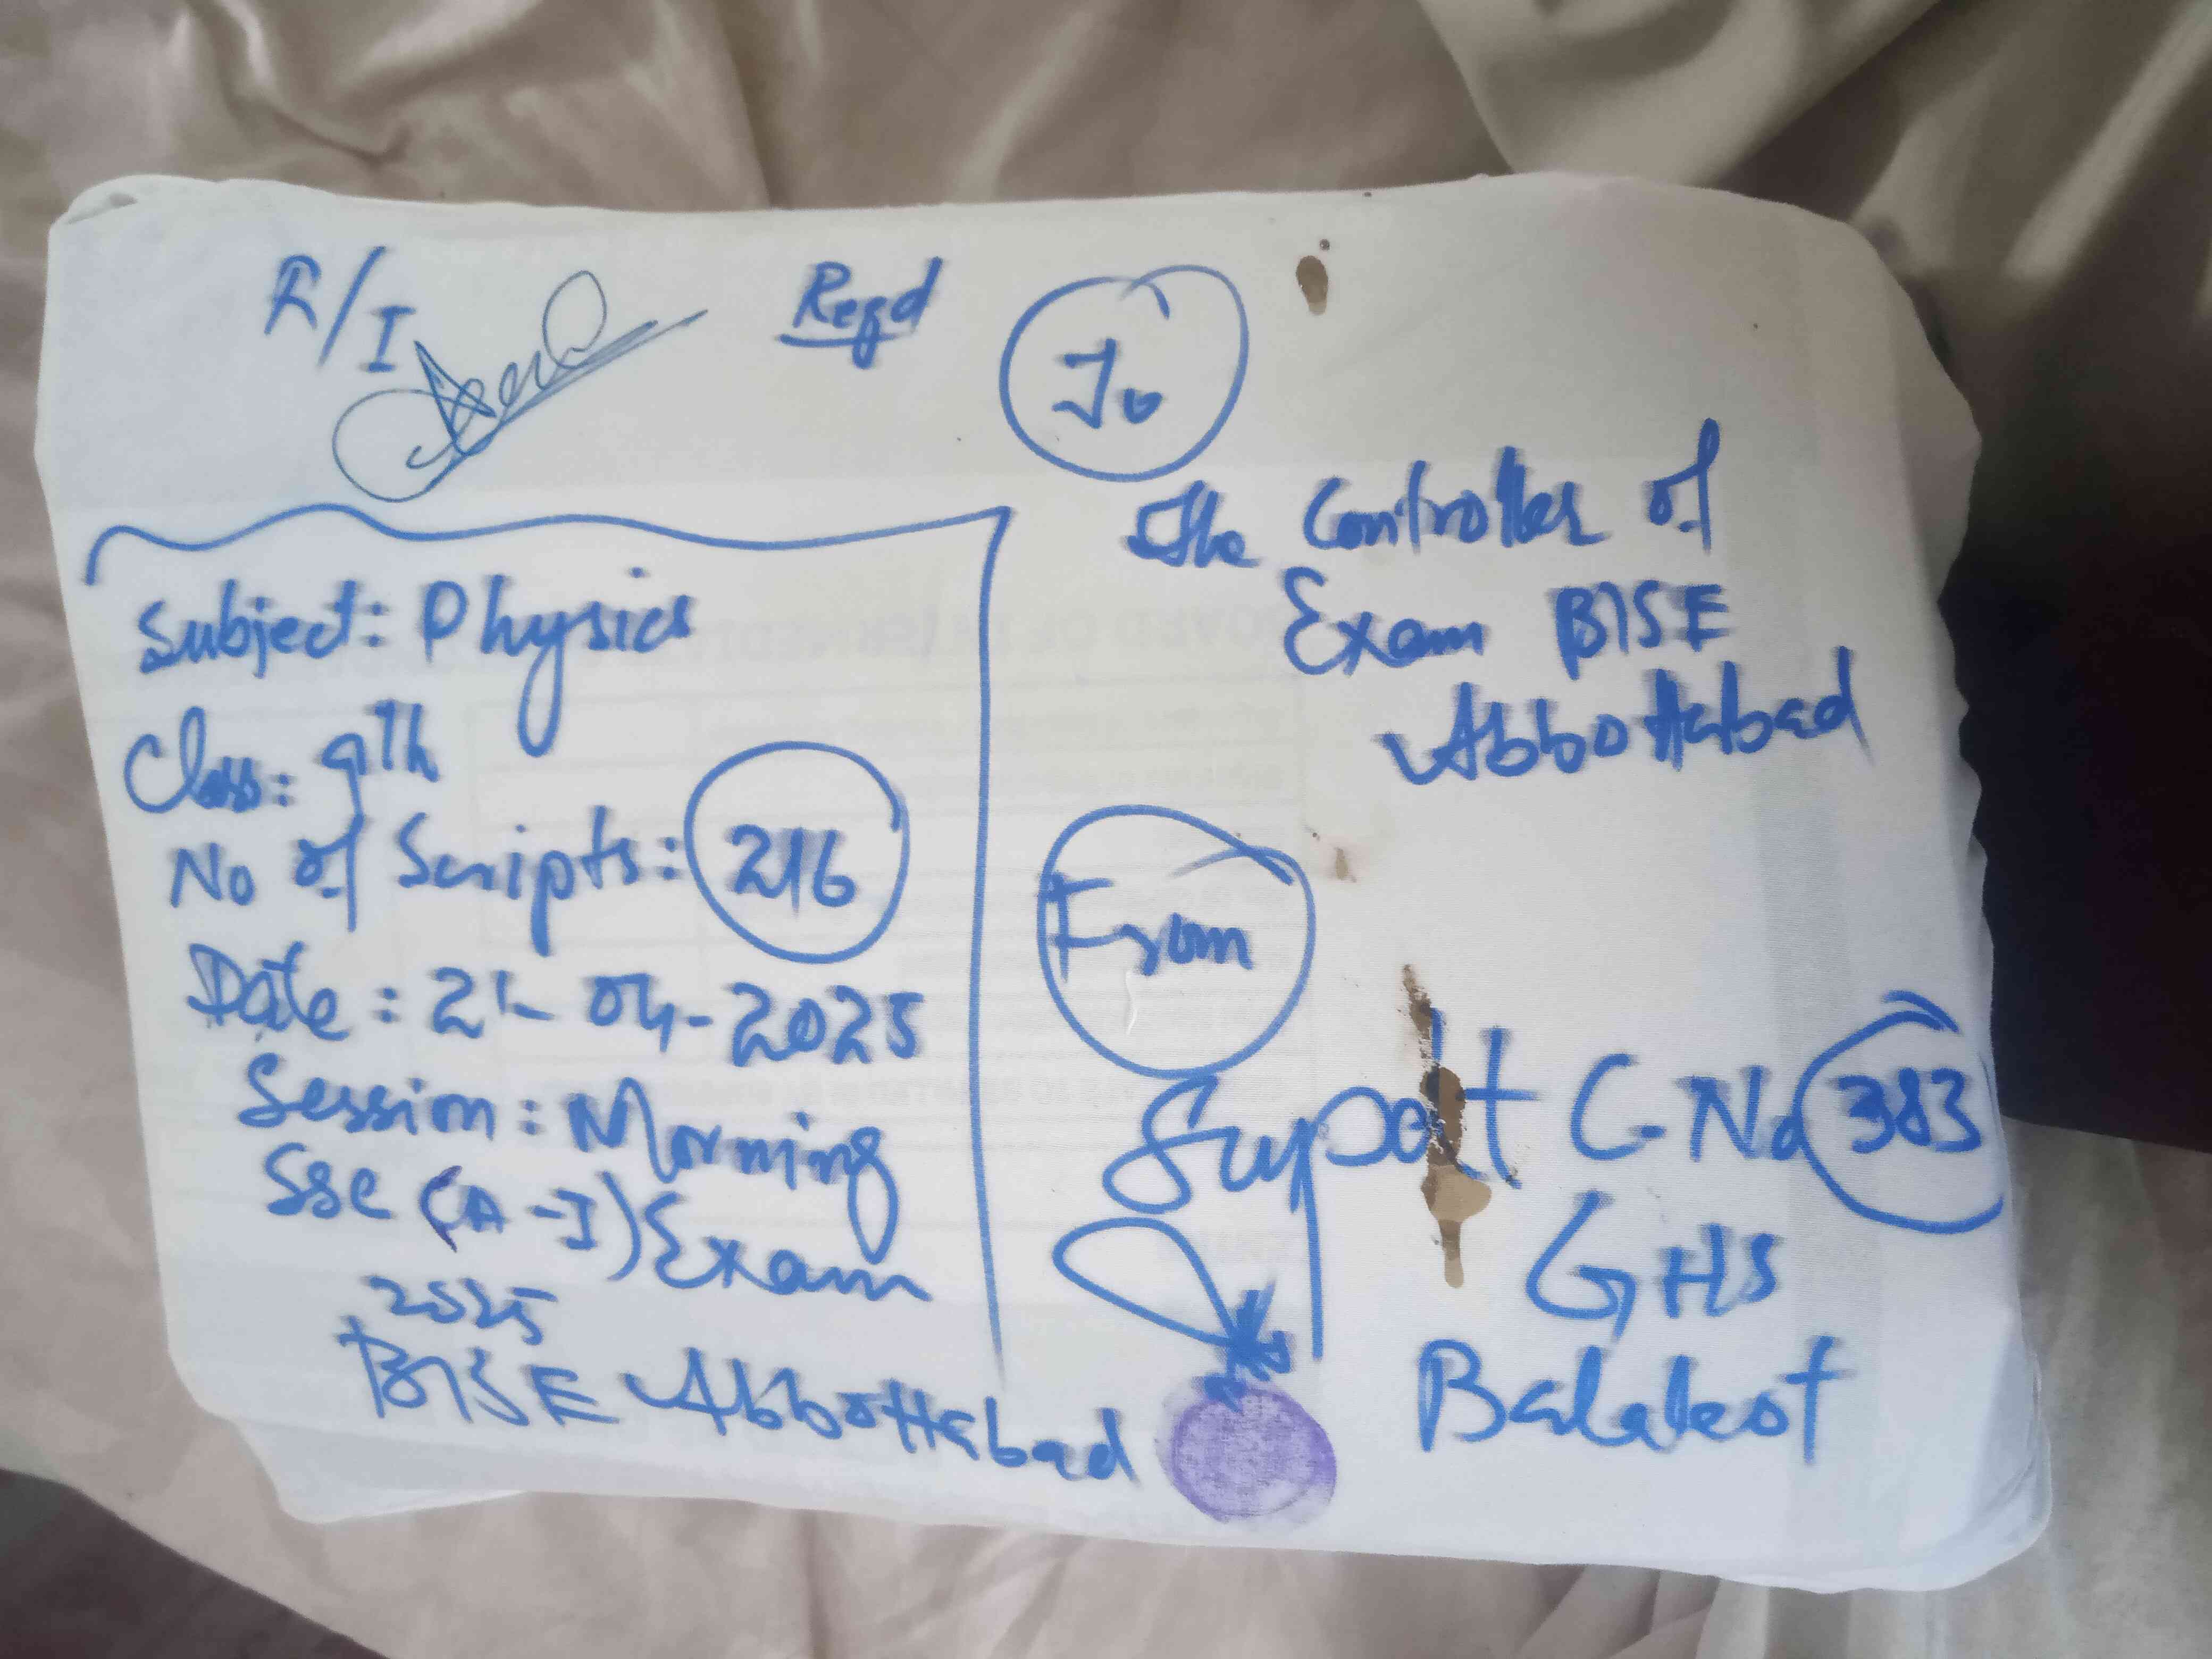 R/I
Regd
Subject: Physics
Class: 9th
No of Scripts: 216
Date: 21-04-2025
Session: Morning
SSC (A-I) Exam
2025
BISE Abbottabad
To
The Controller of
Exam BISE
Abbottabad
From
Supdtt C-No 383
GHS
Balakot